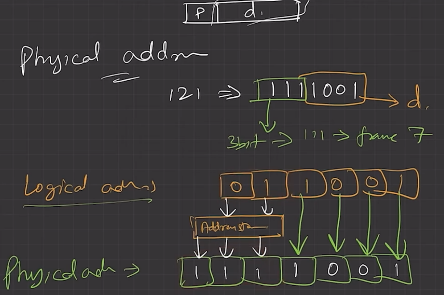 P d.
Physical addrs
121 ⇒ 1111001 → d.
3bit → 111 → frame 7
Logical adrs
0 1 1 0 0 1
Physical adr ⇒ 1 1 1 1 0 0 1